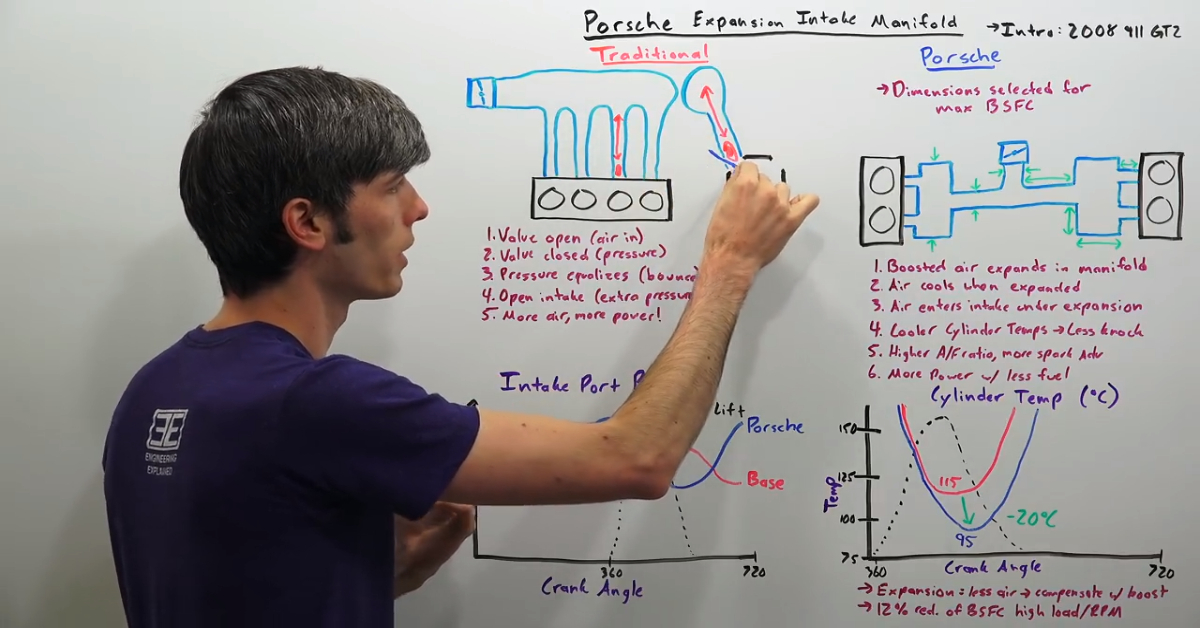 Porsche Expansion Intake Manifold
→Intro: 2008 911 GT2
Traditional
Porsche
→Dimensions selected for
max BSFC
1. Valve open (air in)
2. Valve closed (pressure)
3. Pressure equalizes (bounce
4. Open intake (extra pressure
5. More air, more power!
1. Boosted air expands in manifold
2. Air cools when expanded
3. Air enters intake under expansion
4. Cooler Cylinder Temps → Less knock
5. Higher A/F ratio, more spark Adv
6. More Power w/ less fuel
Intake Port P
Lift
Porsche
Base
360
720
Crank Angle
Cylinder Temp (°C)
150
125
100
75
Temp
115
-20°C
95
360
720
Crank Angle
→ Expansion = less air → compensate w/ boost
→ 12% red. of BSFC high load/RPM
EE
ENGINEERING
EXPLAINED